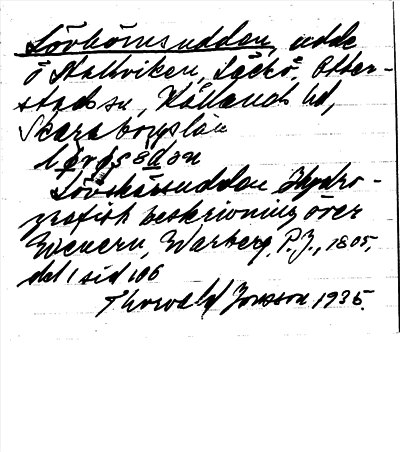 Lövhörnsudden, udde
i Kallviken, Läckö, Otter-
stads sn, Kållands hd,
Skaraborgs län
Lövskärsudden Hydro-
grafisk beskrivning över
Wenern, Warberg, P.J., 1805,
del 1 sid 106
Thorwald Jonsson 1935.